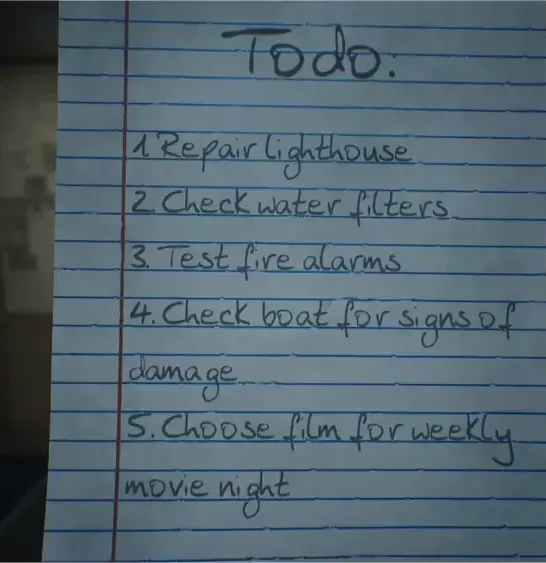 Todo:
1 Repair lighthouse
2. Check water filters
3. Test fire alarms
4. Check boat for signs of
damage
5. Choose film for weekly
movie night